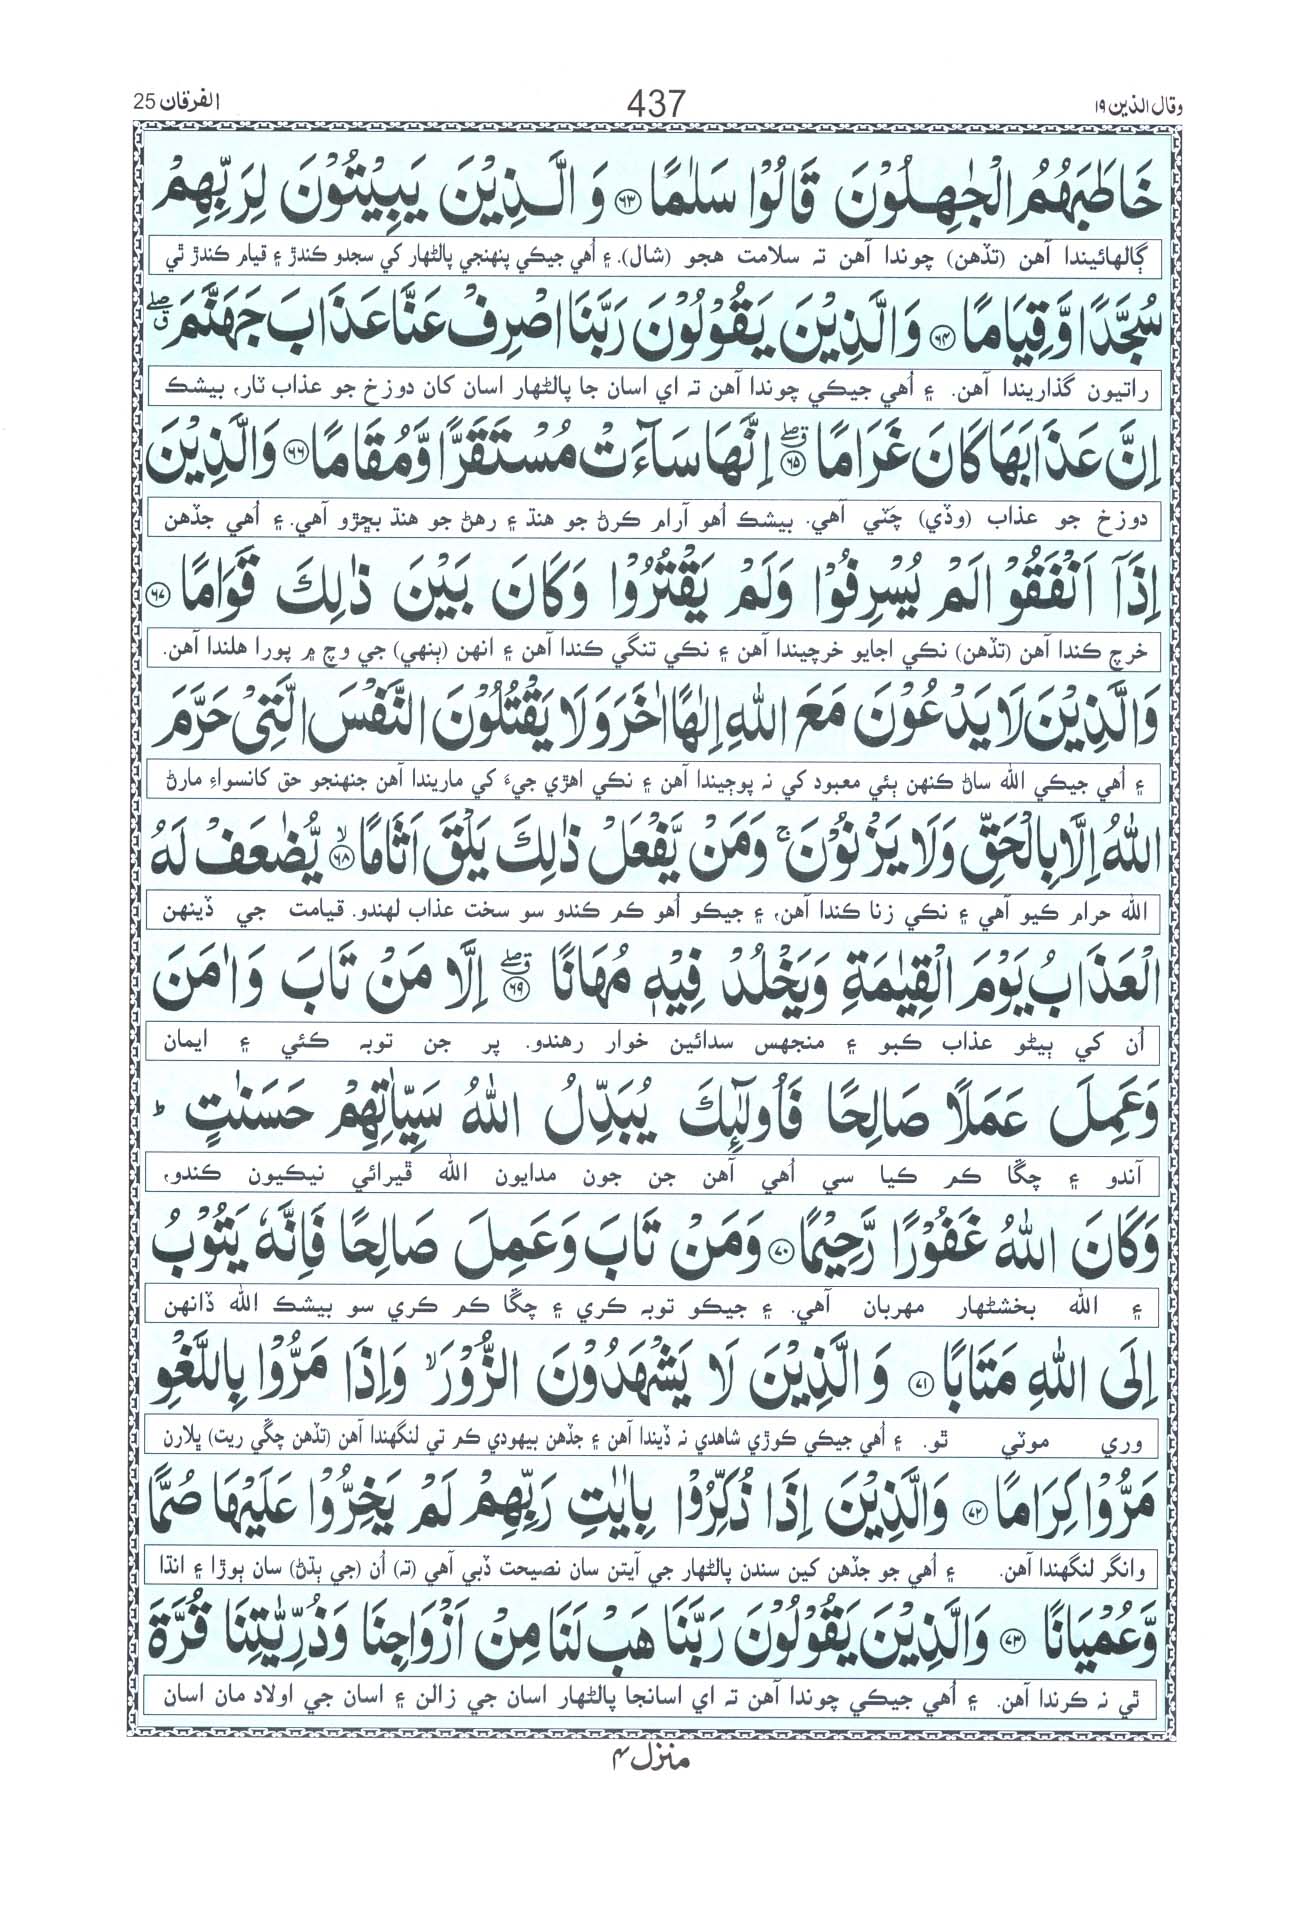 وقال الذین ۱۹
437
الفرقان 25
خَاطَبَهُمُ الْجٰهِلُوْنَ قَالُوْا سَلٰمًا ۝۶۳ وَ الَّذِيْنَ يَبِيْتُوْنَ لِرَبِّهِمْ
ڳالهائيندا آهن (تڏهن) چوندا آهن تہ سلامت هجو (شال). ۽ اُهي جيڪي پنهنجي پالڻهار کي سجدو ڪندڙ ۽ قيام ڪندڙ ٿي
سُجَّدًا وَّقِيَامًا ۝۶۴ وَالَّذِيْنَ يَقُوْلُوْنَ رَبَّنَا اصْرِفْ عَنَّا عَذَابَ جَهَنَّمَ ۖق
راتيون گذاريندا آهن. ۽ اُهي جيڪي چوندا آهن تہ اي اسان جا پالڻهار اسان کان دوزخ جو عذاب ٽار، بيشڪ
اِنَّ عَذَابَهَا كَانَ غَرَامًا ۝۶۵ۖق اِنَّهَا سَآءَتْ مُسْتَقَرًّا وَّمُقَامًا ۝۶۶ وَالَّذِيْنَ
دوزخ جو عذاب (وڏي) چٽي آهي. بيشڪ اُهو آرام ڪرڻ جو هنڌ ۽ رهڻ جو هنڌ بڇڙو آهي. ۽ اُهي جڏهن
اِذَآ اَنْفَقُوْا لَمْ يُسْرِفُوْا وَلَمْ يَقْتُرُوْا وَكَانَ بَيْنَ ذٰلِكَ قَوَامًا ۝۶۷
خرچ ڪندا آهن (تڏهن) نڪي اجايو خرچيندا آهن ۽ نڪي تنگي ڪندا آهن ۽ انهن (ٻنهي) جي وچ ۾ پورا هلندا آهن.
وَالَّذِيْنَ لَا يَدْعُوْنَ مَعَ اللّٰهِ اِلٰهًا اٰخَرَ وَلَا يَقْتُلُوْنَ النَّفْسَ الَّتِيْ حَرَّمَ
۽ اُهي جيڪي الله ساڻ ڪنهن ٻئي معبود کي نہ پوڄيندا آهن ۽ نڪي اهڙي جيءَ کي ماريندا آهن جنهنجو حق کانسواءِ مارڻ
اللّٰهُ اِلَّا بِالْحَقِّ وَلَا يَزْنُوْنَ ۚ وَمَنْ يَّفْعَلْ ذٰلِكَ يَلْقَ اَثَامًا ۝۶۸ۙ يُّضٰعَفْ لَهُ
الله حرام ڪيو آهي ۽ نڪي زنا ڪندا آهن، ۽ جيڪو اُهو ڪم ڪندو سو سخت عذاب لهندو. قيامت جي ڏينهن
الْعَذَابُ يَوْمَ الْقِيٰمَةِ وَيَخْلُدْ فِيْهٖ مُهَانًا ۝۶۹ۖق اِلَّا مَنْ تَابَ وَاٰمَنَ
اُن کي ٻيڻو عذاب ڪبو ۽ منجهس سدائين خوار رهندو. پر جن توبہ ڪئي ۽ ايمان
وَعَمِلَ عَمَلًا صَالِحًا فَاُولٰٓئِكَ يُبَدِّلُ اللّٰهُ سَيِّاٰتِهِمْ حَسَنٰتٍ ؕ
آندو ۽ چڱا ڪم ڪيا سي اُهي آهن جن جون مدايون الله ڦيرائي نيڪيون ڪندو،
وَكَانَ اللّٰهُ غَفُوْرًا رَّحِيْمًا ۝۷۰ وَمَنْ تَابَ وَعَمِلَ صَالِحًا فَاِنَّهٗ يَتُوْبُ
۽ الله بخشڻهار مهربان آهي. ۽ جيڪو توبہ ڪري ۽ چڱا ڪم ڪري سو بيشڪ الله ڏانهن
اِلَى اللّٰهِ مَتَابًا ۝۷۱ وَالَّذِيْنَ لَا يَشْهَدُوْنَ الزُّوْرَ ۙ وَاِذَا مَرُّوْا بِاللَّغْوِ
وري موٽي ٿو. ۽ اُهي جيڪي ڪوڙي شاهدي نہ ڏيندا آهن ۽ جڏهن بيهودي ڪم تي لنگهندا آهن (تڏهن چڱي ريت) ڀلارن
مَرُّوْا كِرَامًا ۝۷۲ وَالَّذِيْنَ اِذَا ذُكِّرُوْا بِاٰيٰتِ رَبِّهِمْ لَمْ يَخِرُّوْا عَلَيْهَا صُمًّا
وانگر لنگهندا آهن. ۽ اُهي جو جڏهن کين سندن پالڻهار جي آيتن سان نصيحت ڏبي آهي (تہ) اُن (جي ٻڌڻ) سان ٻوڙا ۽ انڌا
وَّعُمْيَانًا ۝۷۳ وَالَّذِيْنَ يَقُوْلُوْنَ رَبَّنَا هَبْ لَنَا مِنْ اَزْوَاجِنَا وَذُرِّيّٰتِنَا قُرَّةَ
ٿي نہ ڪرندا آهن. ۽ اُهي جيڪي چوندا آهن تہ اي اسانجا پالڻهار اسان جي زالن ۽ اسان جي اولاد مان اسان
منزل ۴